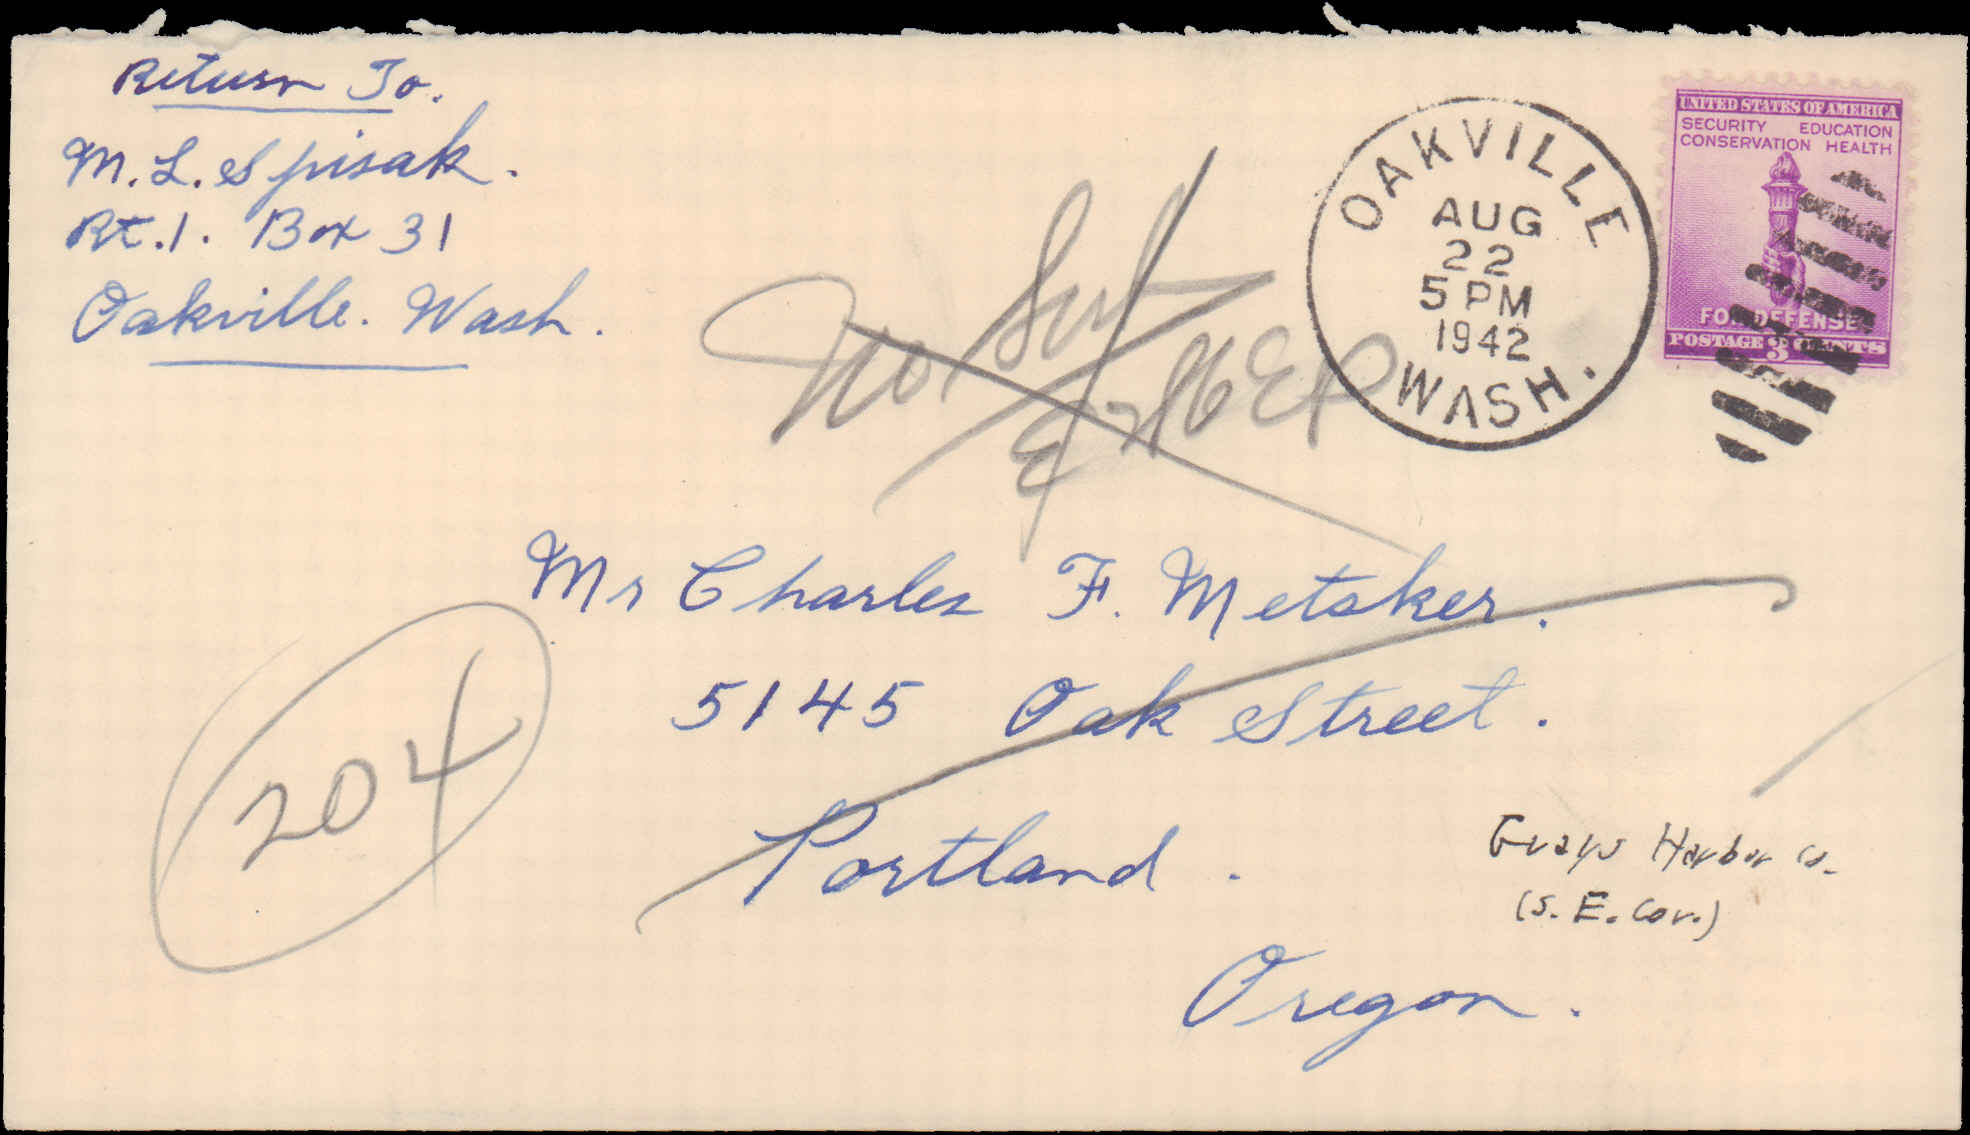 Return To.
M. L. Spisak.
Rt. 1. Box 31
Oakville. Wash.
OAKVILLE
AUG
22
5 PM
1942
WASH.
UNITED STATES OF AMERICA
SECURITY EDUCATION
CONSERVATION HEALTH
FOR DEFENSE
POSTAGE 3 CENTS
No
Mr Charles F. Metsker.
5145 Oak Street.
Portland.
Oregon.
204
Grays Harbor Co.
(S. E. Cor.)